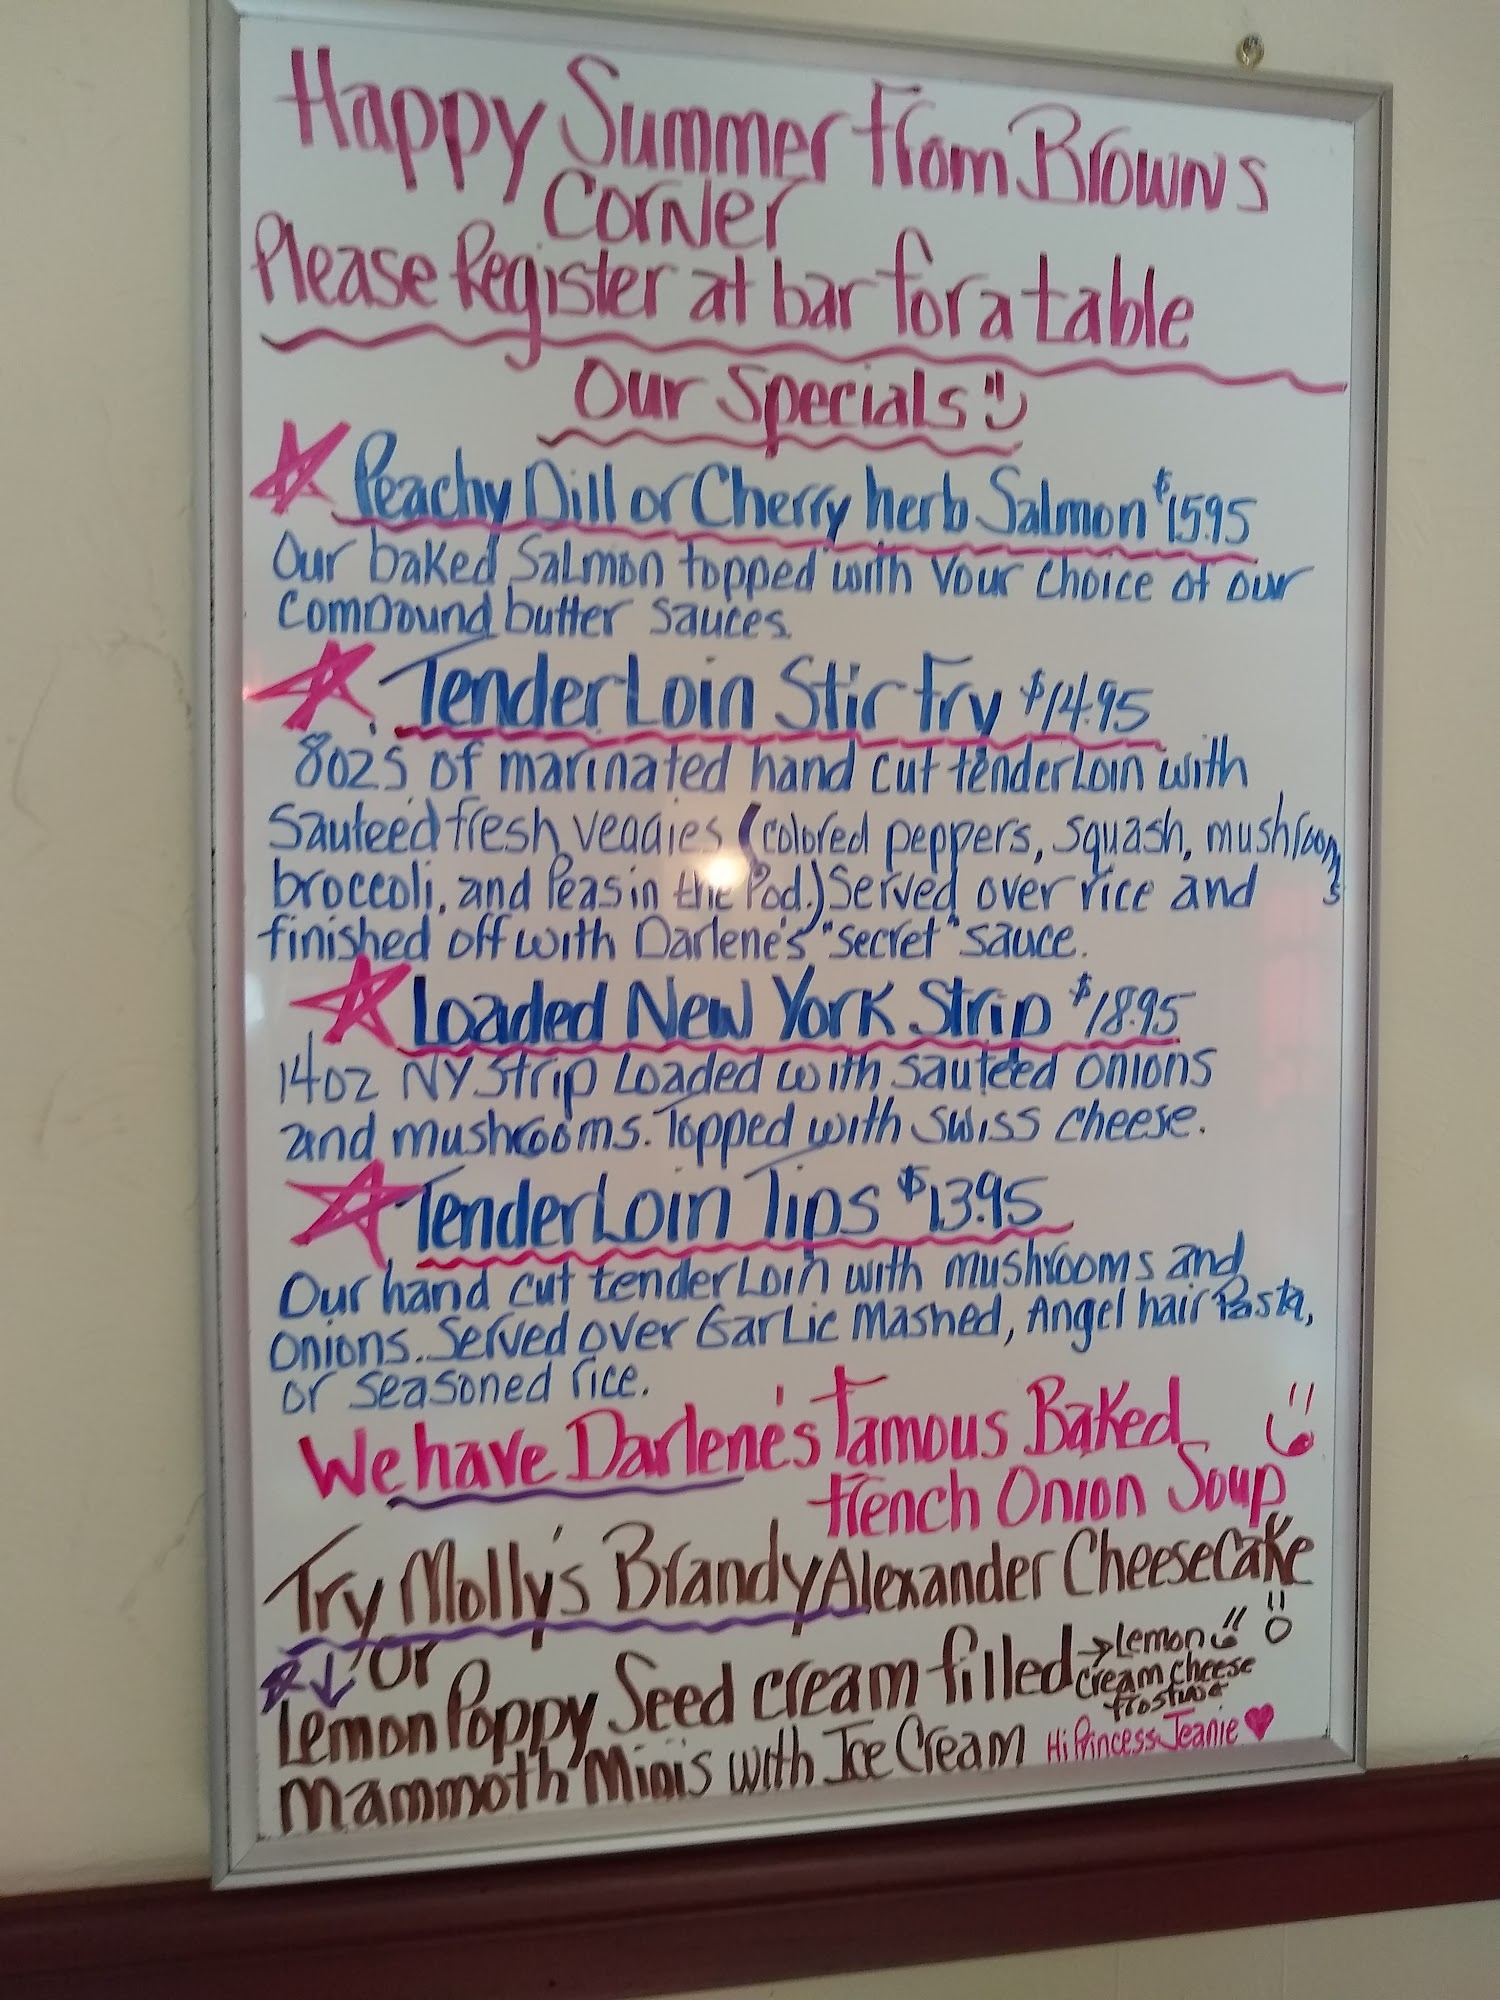 Happy Summer From Browns
Corner
Please Register at bar for a table
Our Specials
Peachy Dill or Cherry herb Salmon $15.95
Our baked Salmon topped with Your Choice of our
Compound butter sauces.
Tenderloin Stir Fry $14.95
8oz's of marinated hand cut tenderloin with
Sauteed fresh veggies (colored peppers, squash, mushrooms
broccoli, and Peas in the Pod.) Served over rice and
finished off with Darlene's "secret" sauce.
Loaded New York Strip $18.95
14oz NY Strip Loaded with sauteed onions
and mushrooms. Topped with swiss cheese.
Tenderloin Tips $13.95
Our hand cut tenderloin with mushrooms and
onions. Served over Garlic Mashed, Angel hair Pasta,
or seasoned rice.
We have Darlene's Famous Baked
French Onion Soup
Try Molly's Brandy Alexander CheeseCake
or
Lemon Poppy Seed cream filled → Lemon
cream cheese
frosting
Mammoth Minis with Ice Cream Hi Princess Jeanie ♥